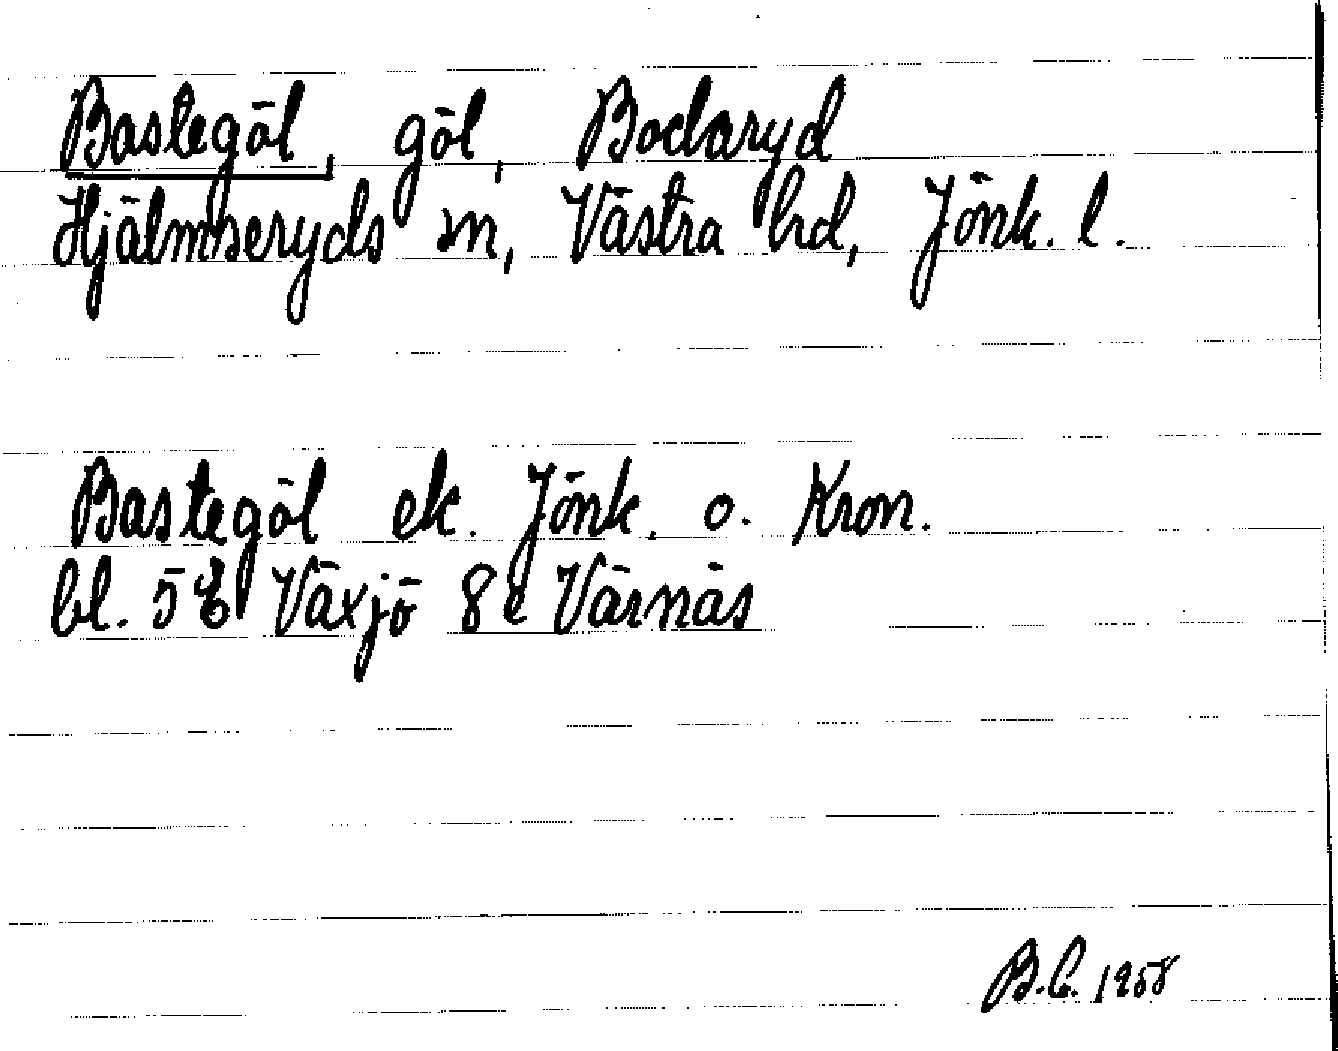 Bastegöl, göl, Bodaryd
Hjälmseryds sn, Västra hd, Jönk. l.
Bastegöl ek. Jönk. o. Kron.
bl. 5E Växjö 8e Värnäs
B.C. 1958